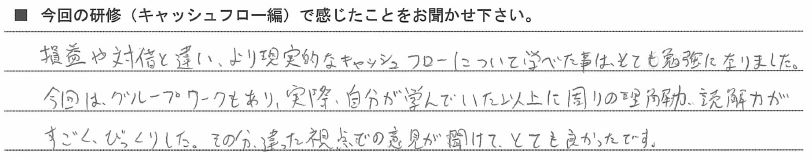 ■ 今回の研修（キャッシュフロー編）で感じたことをお聞かせ下さい。
損益や対借と違い、より現実的なキャッシュフローについて学べた事は、とても勉強になりました。
今回は、グループワークもあり、実際、自分が学んでいた以上に周りの理解力、読解力が
すごく、びっくりした。その分、違った視点での意見が聞けて、とても良かったです。